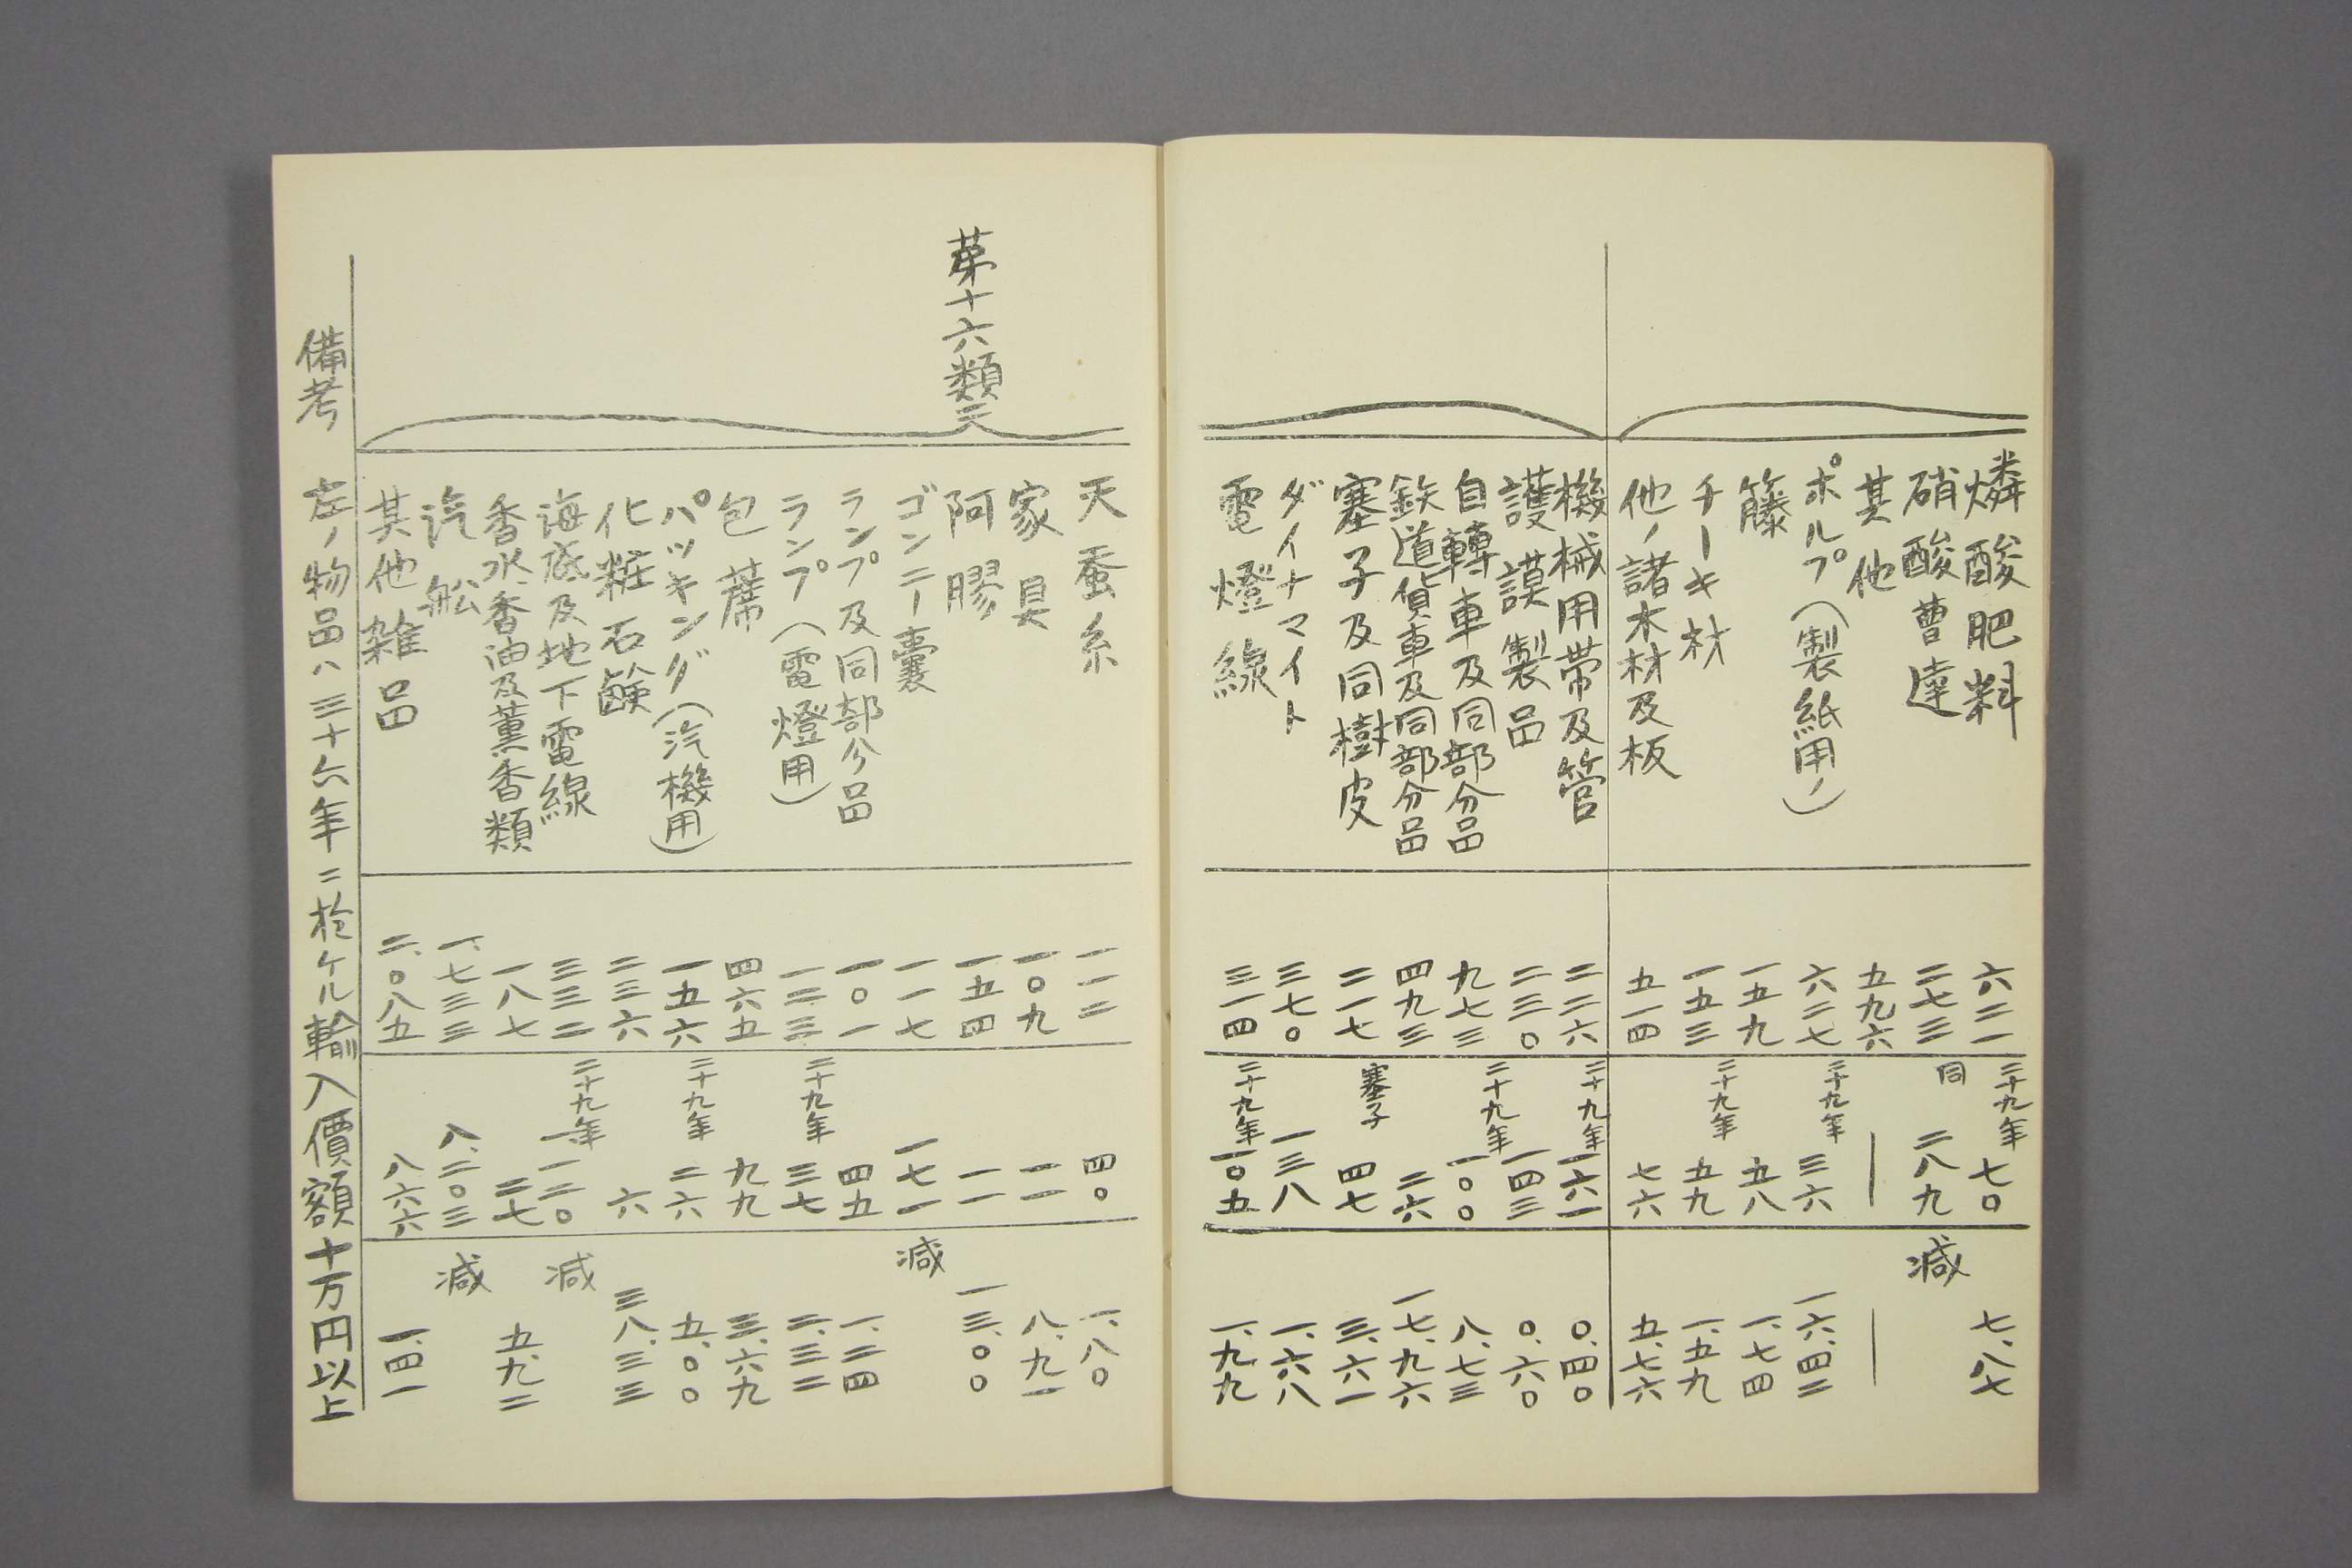 燐酸肥料 六二一 二十九年 七〇 七、八七
硝酸曹達 二七三 同 二八九 減
其他 五九六 ― ―
ポルプ（製紙用ノ） 六二七 二十九年 三六 一六、四二
籐 一五九 五八 一、七四
チーキ材 一五三 二十九年 五九 一、五九
他ノ諸木材及板 五一四 七六 五、七六
機械用帯及管 二二六 二十九年 一六一 〇、四〇
護謨製品 二三〇 一四三 〇、六〇
自轉車及同部分品 九七三 二十九年 一〇〇 八、七三
鉄道貨車及同部分品 四九三 二六 一七、九六
塞子及同樹皮 二一七 塞子 四七 三、六一
ダイナマイト 三七〇 一三八 一、六八
電燈線 三一四 二十九年 一〇五 一、九九
天蚕糸 一一二 四〇 一、八〇
家具 一〇九 一一 八、九一
第十六類
阿膠 一五四 一一 一三、〇〇
ゴンニー嚢 一一七 一七一 減
ランプ及同部分品 一〇一 四五 一、二四
ランプ（電燈用） 一二三 二十九年 三七 二、三二
包蓆 四六五 九九 三、六九
パッキング（汽機用） 一五六 二十九年 二六 五、〇〇
化粧石鹸 二三六 六 三八、三三
海底及地下電線 三三二 二十九年 一、一二〇 減
香水、香油及薫香類 一八七 二七 五、九二
汽舩 一、七三三 八、二〇三 減
其他雑品 二、〇八五 八六六 一、四一
備考 左ノ物品ハ三十六年ニ於ケル輸入價額十万円以上